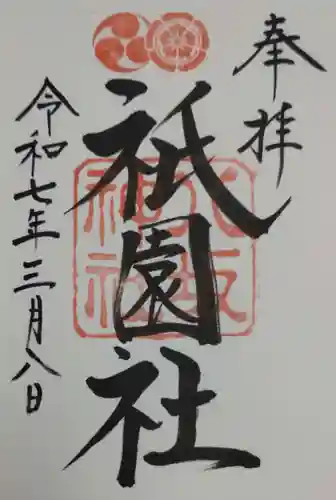 奉拝
祇園社
八坂神社
令和七年三月八日